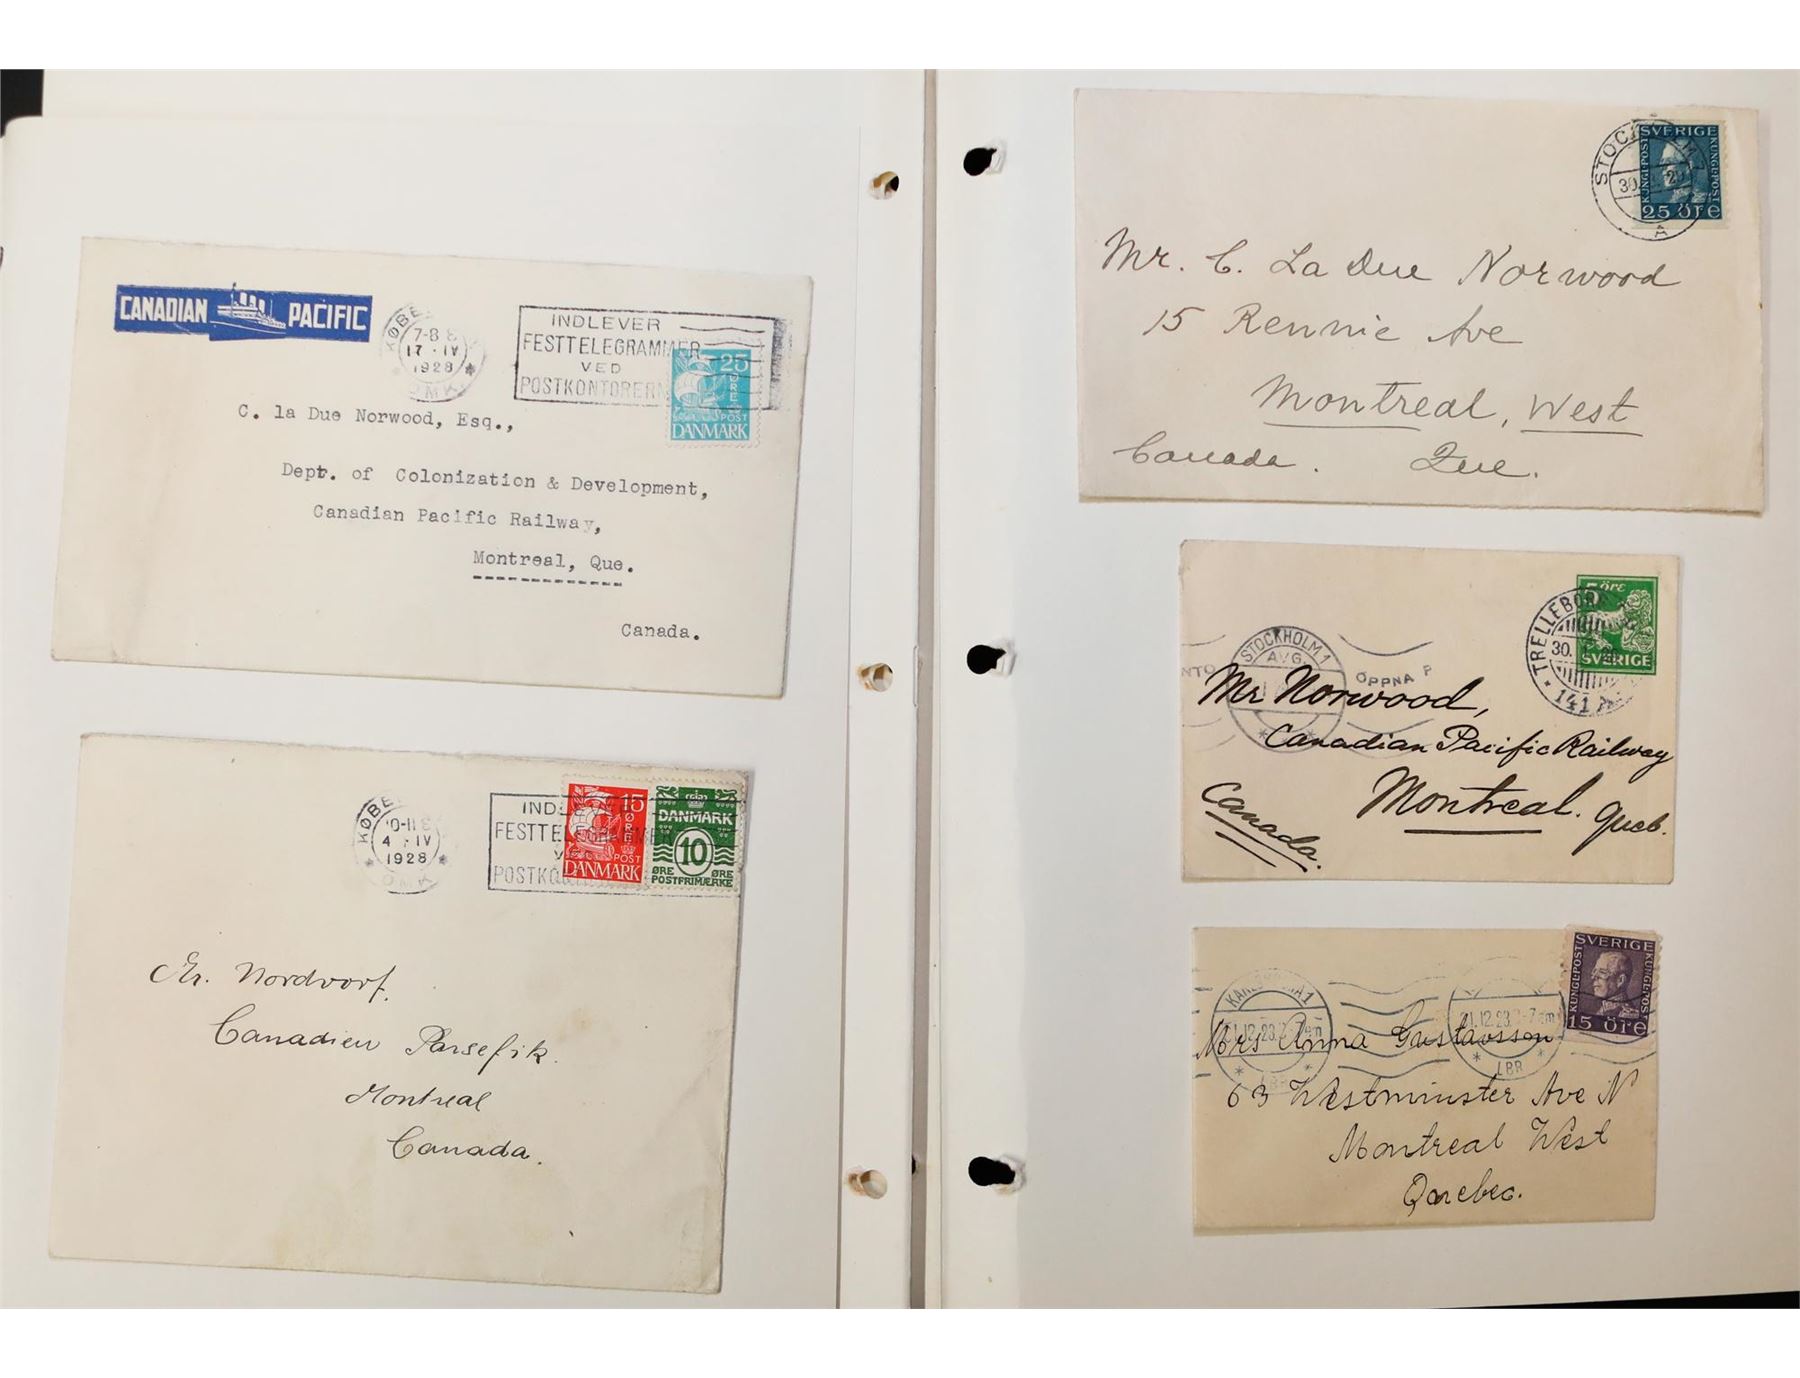 CANADIAN PACIFIC
KØBE
7-8 E
17 · IV
1928
OMK
INDLEVER
FESTTELEGRAMMER
VED
POSTKONTORERN
25
ØRE
POST
DANMARK
C. la Due Norwood, Esq.,
Dept. of Colonization & Development,
Canadian Pacific Railway,
Montreal, Que.
Canada.
KØBE
4 · IV
1928
OMK
IND
FESTTELEGRAMMER
POSTKO
15
ØRE
POST
DANMARK
DANMARK
10
ØRE ØRE
POSTFRIMÆRKE
Hr. Nordvorf.
Canadien Parsefik.
Montreal
Canada.
STOC
30.
A
SVERIGE
KUNGL·POST
KUNGL·POST
25 öre
Mr. C. La Due Norwood
15 Rennie Ave
Montreal, West
Canada. Que.
5 öre
SVERIGE
TRELLEBORG
30.
141
STOCKHOLM 1
AVG.
ÖPPNA P
NTO
Mr Norwood,
Canadian Pacific Railway
Montreal. Queb.
Canada.
SVERIGE
KUNGL·POST
KUNGL·POST
15 öre
1.12.23.
LBR
21.12.23. -7 em
LBR
Mrs Anna Gustavsson
63 Westminster Ave N
Montreal West
Quebec.